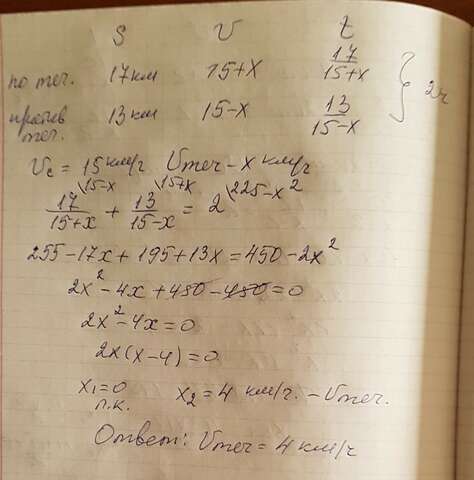 S V t
по теч. 17км 15+x 17/15+x
против теч. 13км 15-x 13/15-x } 2ч
Vc = 15 км/ч Vтеч - x км/ч
17/15+x \15-x + 13/15-x \15+x = 2 \225-x²
255-17x+195+13x=450-2x²
2x²-4x+450-450=0
2x²-4x=0
2x(x-4)=0
x₁=0 x₂=4 км/ч. -Vтеч.
п.к.
Ответ: Vтеч=4км/ч